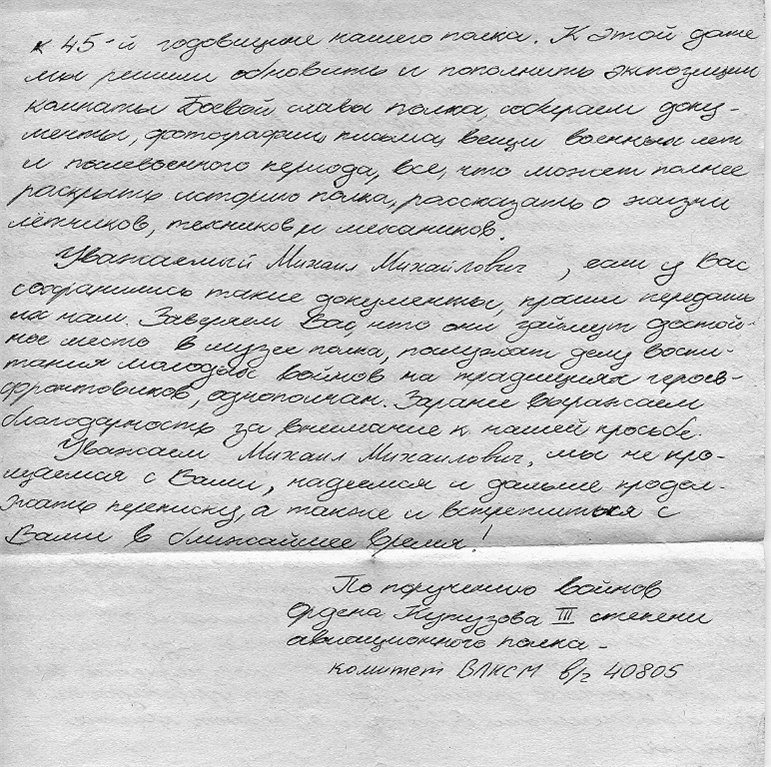 к 45-й годовщине нашего полка. К этой дате
мы решили обновить и пополнить экспозиции
комнаты Боевой славы полка, собираем доку-
менты, фотографии, письма, вещи военных лет
и послевоенного периода, все, что может полнее
раскрыть историю полка, рассказать о жизни
лётчиков, техников и механиков.
Уважаемый Михаил Михайлович, если у Вас
сохранились такие документы, просим передать
их нам. Заверяем Вас, что они займут достой-
ное место в музее полка, послужат делу воспи-
тания молодых воинов на традициях героев-
фронтовиков, однополчан. Заранее выражаем
благодарность за внимание к нашей просьбе.
Уважаем Михаил Михайлович, мы не про-
щаемся с Вами, надеемся и дальше продол-
жать переписку, а также и встретиться с
Вами в ближайшее время!
По поручению воинов
Ордена Кутузова III степени
авиационного полка -
комитет ВЛКСМ в/ч 40805